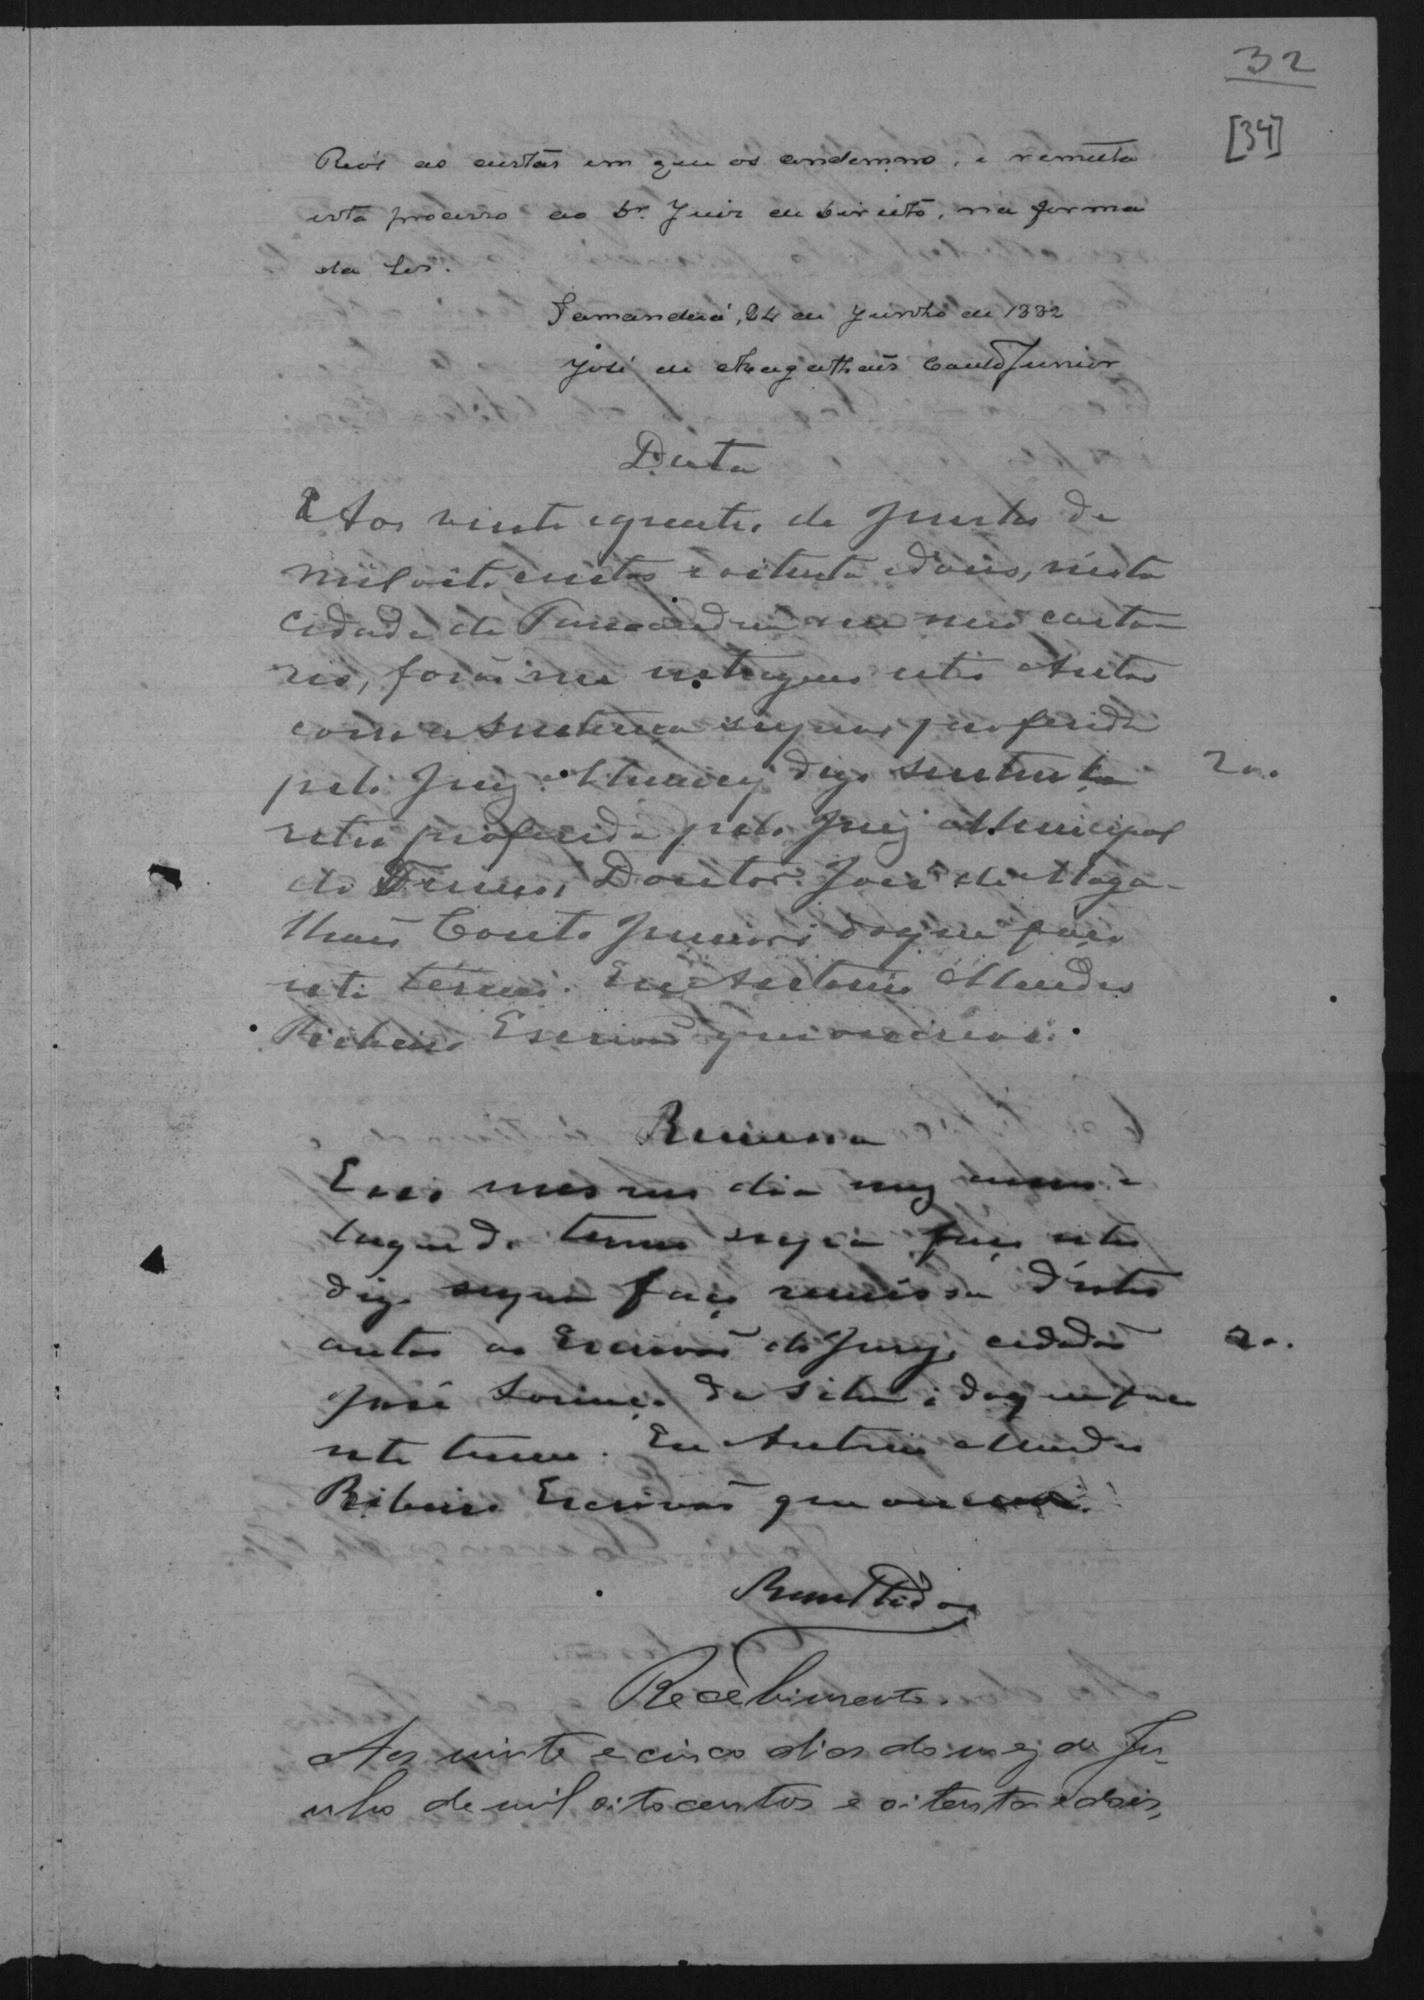 32
[34]
Reos as custas em que os condemno, e remeta
este processo ao Dr. Juiz de Direito, na forma
da Lei.
Tamanduá, 24 de Junho de 1882
José de Magalhães Couto Junior
Data
Aos vinte e quatro de Junho de
mil oito centos e oitenta e dous, nesta
Cidade de Tamanduá em meo carto
rio, forão me entregues estes Autos
com a sentença supra, proferida
pelo Juiz Municip digo sentença
20.
retro proferida pelo Juiz Municipal
do Termo, Doutor José de Maga-
lhães Couto Junior; do que faço
este termo. Eu Antonio Mendes
Ribeiro Escrivão que o escrevi.
Remessa
E no mesmo dia mez anno e
lugar do termo supra faço estes
digo supra faço remessa d'estes
autos ao Escrivão do Jury, cidadão
20.
José Lourenço da Silva; do que faço
este termo. Eu Antonio Mendes
Ribeiro Escrivão que o escrevi.
Remettidos
Recebimento.
Aos vinte e cinco dias do mez de Ju-
nho de mil oitocentos e oitenta e dois,